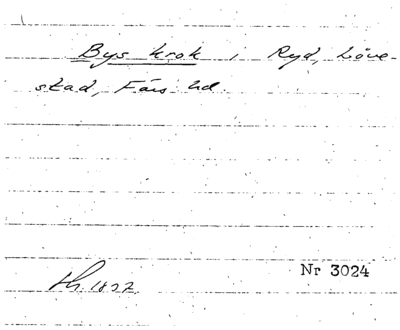 Bys krok i Ryd, Löve-
stad, Färs hd.
Nr 3024